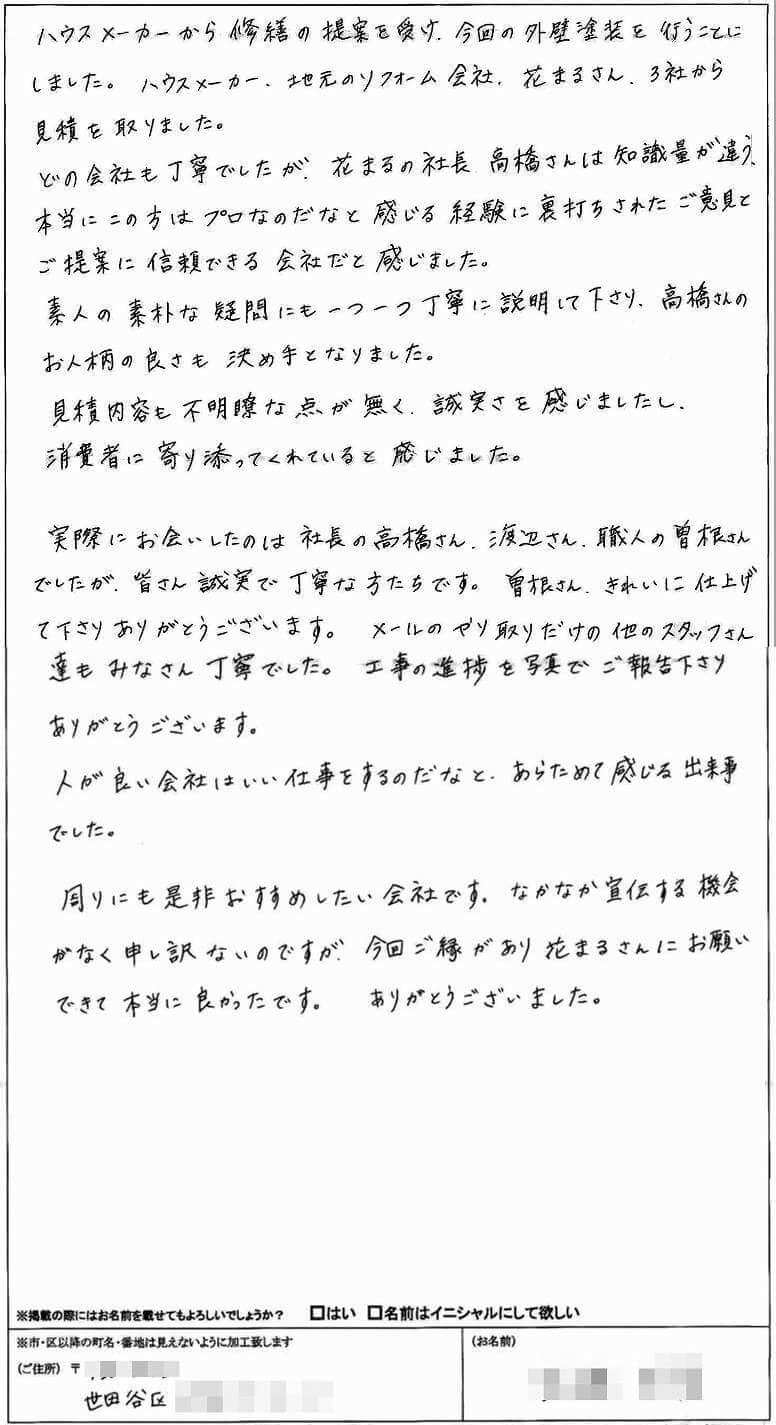 ハウスメーカーから修繕の提案を受け、今回の外壁塗装を行うことに
しました。ハウスメーカー、地元のリフォーム会社、花まるさん、3社から
見積を取りました。
どの会社も丁寧でしたが、花まるの社長 高橋さんは知識量が違う、
本当にこの方はプロなのだなと感じる経験に裏打ちされたご意見と
ご提案に信頼できる会社だと感じました。
素人の素朴な疑問にも一つ一つ丁寧に説明して下さり、高橋さんの
お人柄の良さも決め手となりました。
見積内容も不明瞭な点が無く、誠実さを感じましたし、
消費者に寄り添ってくれていると感じました。
実際にお会いしたのは社長の高橋さん、渡辺さん、職人の曽根さん
でしたが、皆さん誠実で丁寧な方たちです。曽根さん、きれいに仕上げ
て下さりありがとうございます。メールのやり取りだけの他のスタッフさん
達もみなさん丁寧でした。工事の進捗を写真でご報告下さり
ありがとうございます。
人が良い会社はいい仕事をするのだなと、あらためて感じる出来事
でした。
周りにも是非おすすめしたい会社です。なかなか宣伝する機会
がなく申し訳ないのですが、今回ご縁があり花まるさんにお願い
できて本当に良かったです。ありがとうございました。
※掲載の際にはお名前を載せてもよろしいでしょうか? □はい □名前はイニシャルにして欲しい
※市・区以降の町名・番地は見えないように加工致します
(お名前)
(ご住所) 〒
世田谷区